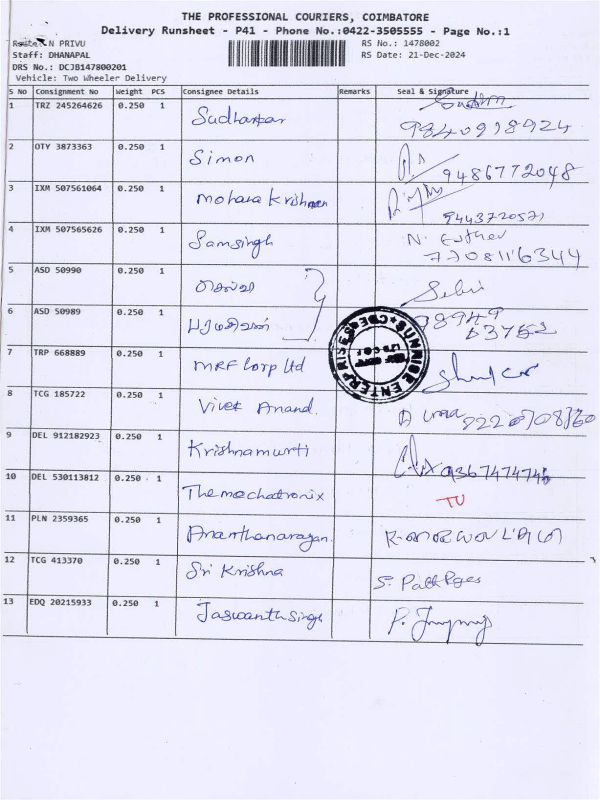 THE PROFESSIONAL COURIERS, COIMBATORE
Delivery Runsheet - P41 - Phone No.:0422-3505555 - Page No.:1
Route: N PRIVU RS No.: 1478002
Staff: DHANAPAL RS Date: 21-Dec-2024
DRS No.: DCJB147800201
Vehicle: Two Wheeler Delivery
S No Consignment No Weight PCS Consignee Details Remarks Seal & Signature
1 TRZ 245264626 0.250 1
9840998924
2 OTY 3873363 0.250 1 Simon
9486772048
3 IXM 507561064 0.250 1 Mohana Krishnan
9443720571
4 IXM 507565626 0.250 1 Samsingh N. Esther
7708116344
5 ASD 50990 0.250 1 செல்வி Selvi
6 ASD 50989 0.250 1
SUNRISE ENTERPRISES * CBE *
7 TRP 668889 0.250 1 MRF Corp Ltd
8 TCG 185722 0.250 1 Vivek Anand.
9 DEL 912182923 0.250 1 Krishnamurti
10 DEL 530113812 0.250 1 Themechatronix
11 PLN 2359365 0.250 1 Ananthanarayan.
12 TCG 413370 0.250 1 Sri Krishna
13 EDQ 20215933 0.250 1 Jaswanth Singh